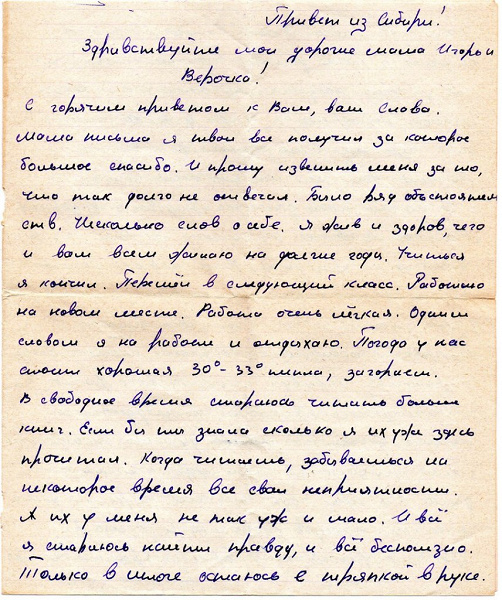 Привет из Сибири!
Здравствуйте мои дорогие мама Игорь и
Верочка!
С горячим приветом к Вам, ваш Слава.
Мама письма я твои все получил за которое
большое спасибо. И прошу извенить меня за то,
что так долго не отвечал. Было ряд обстоятель
ств. Несколько слов о себе. Я жив и здоров, чего
и вам всем желаю на долгие года. Учиться
я кончил. Перешёл в следующий класс. Работаю
на новом месте. Работа очень лёгкая. Одним
словом я на работе и отдыхаю. Погода у нас
стоит хорошая 30°-33° тепла, загораем.
В свободное время стараюсь читать больше
книг. Если бы ты знала сколько я их уже здесь
прочитал. Когда читаешь, забываешься на
некоторое время все свои неприятности.
А их у меня не так уж и мало. И всё
я стараюсь найти правду, и всё бесполезно.
Только в итоге остаюсь с тряпкой в руке.